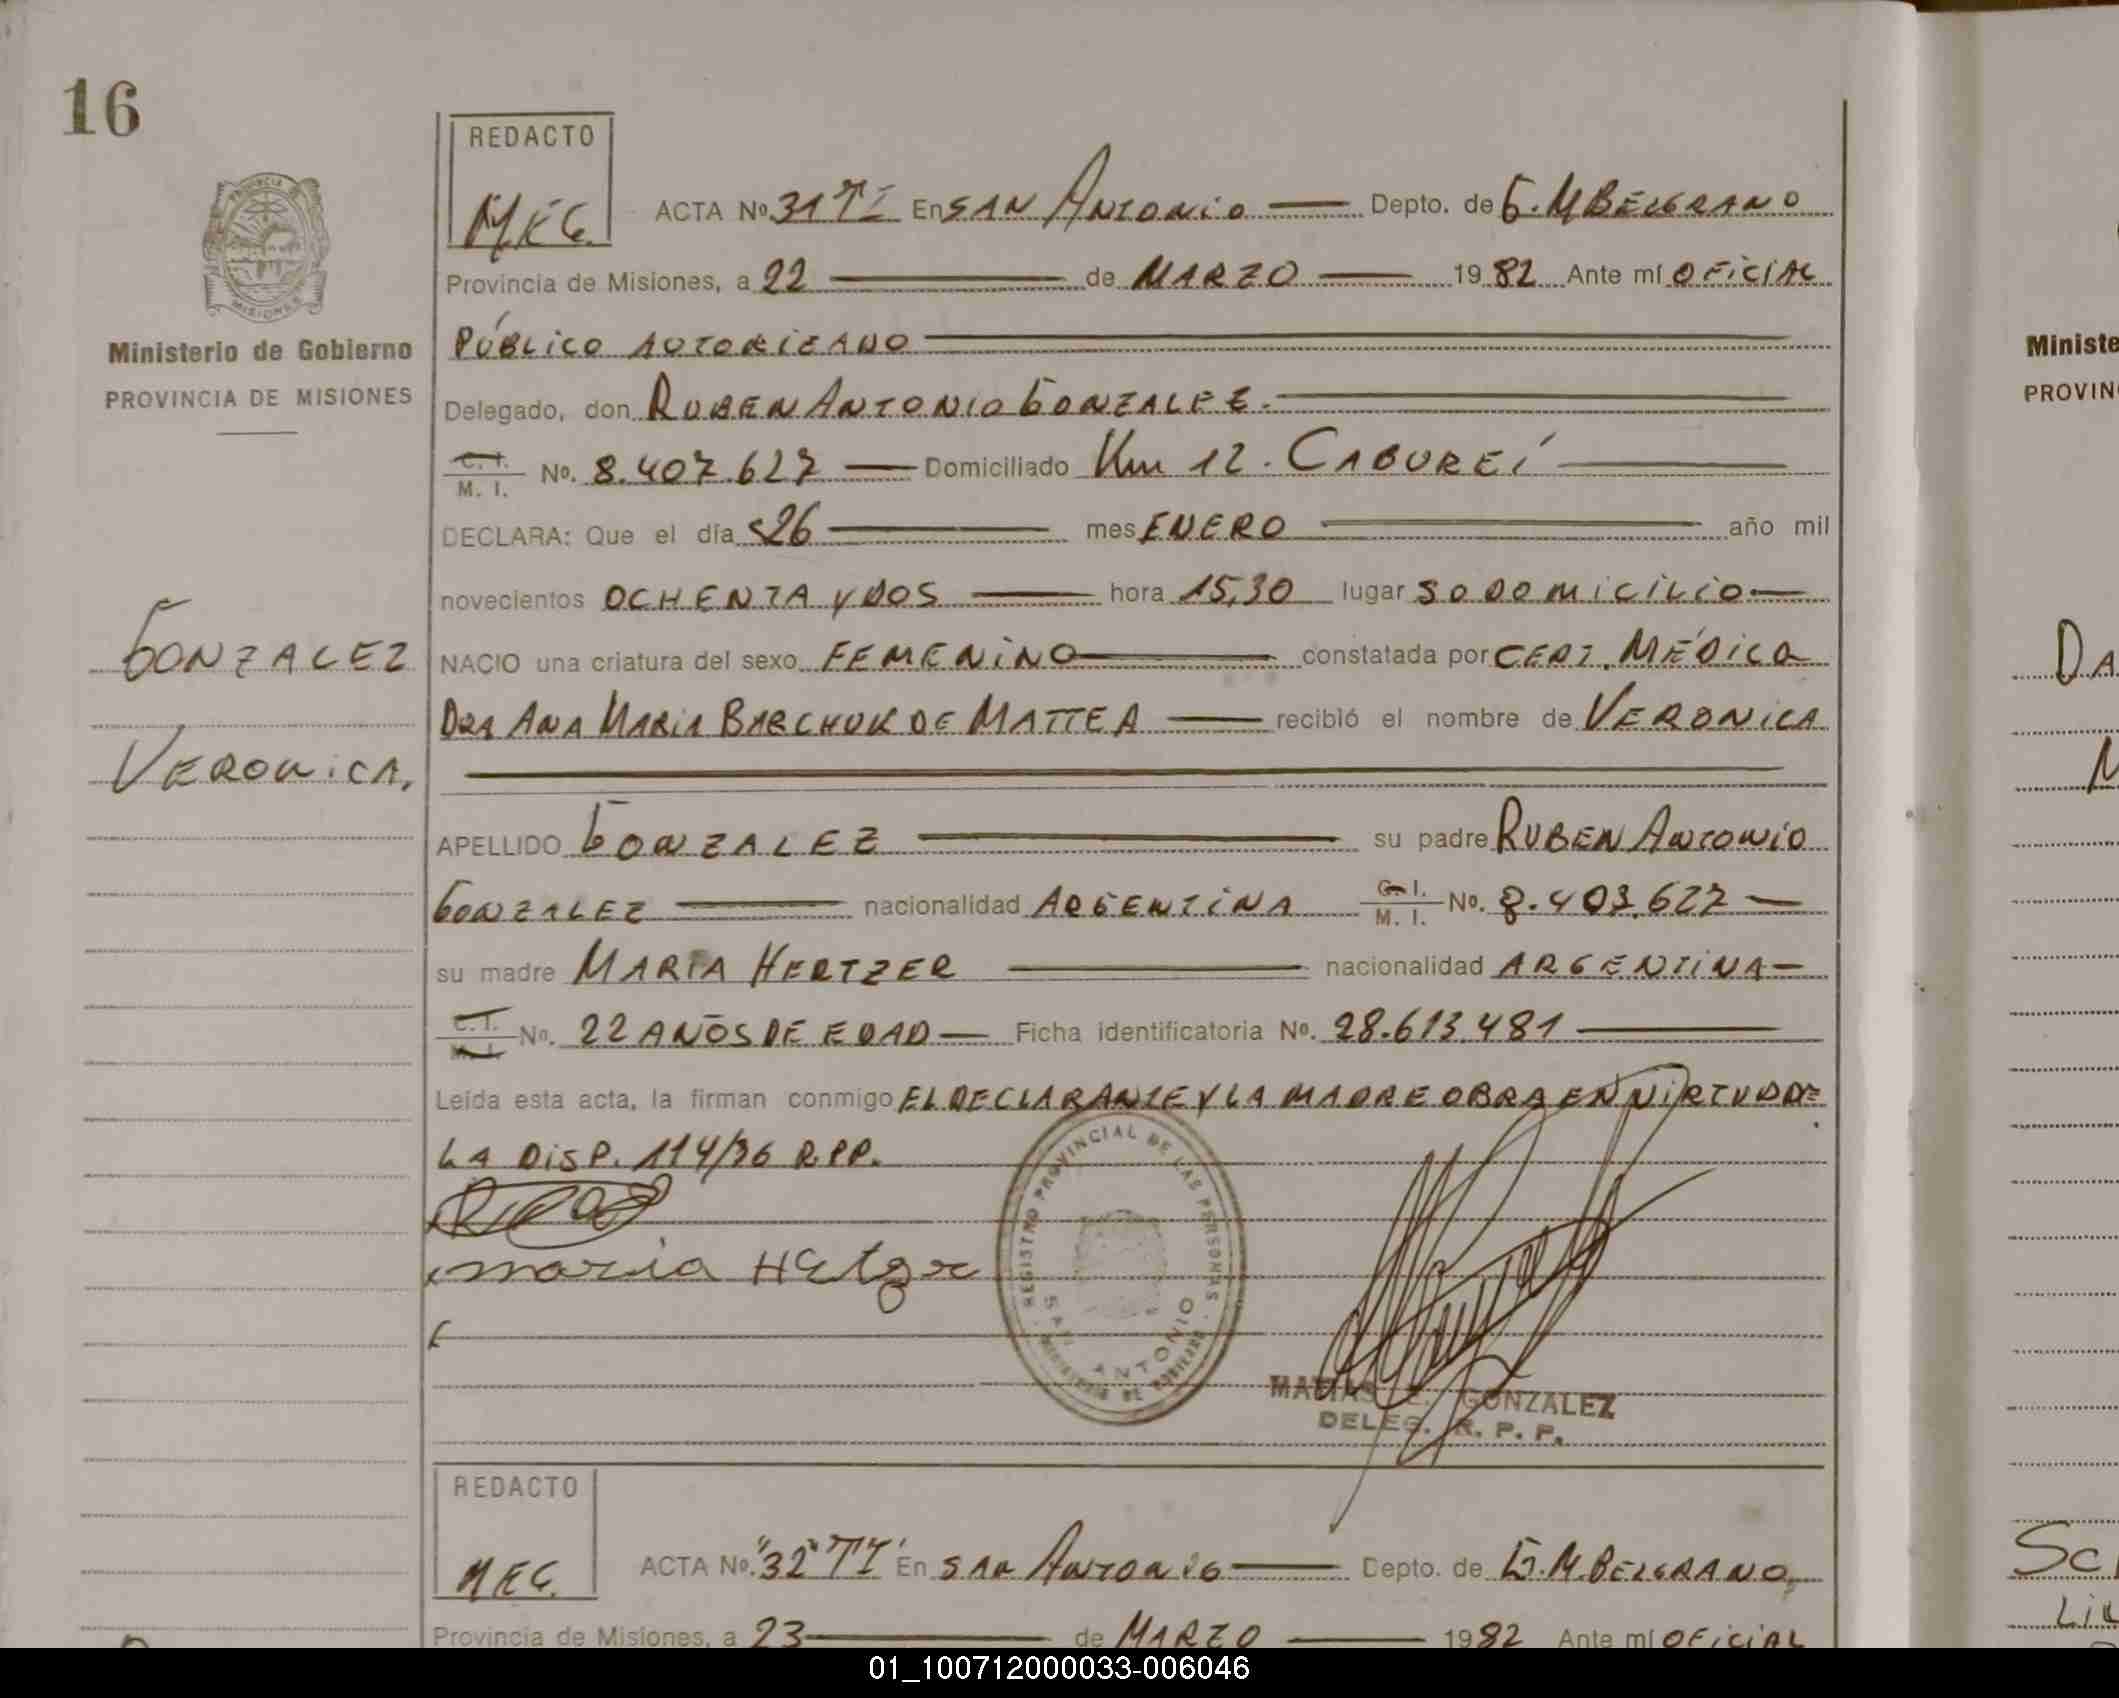 16
REDACTO
MEG.
PROVINCIA DE
MISIONES
Ministerio de Gobierno
PROVINCIA DE MISIONES
GONZALEZ
VERONICA.
ACTA Nº 31 TI En SAN ANTONIO — Depto. de G. M BELGRANO
Provincia de Misiones, a 22 — de MARZO — 1982 Ante mí OFICIAL
PÚBLICO AUTORIZADO —
Delegado, don RUBEN ANTONIO GONZALEZ. —
C. I. / M. I. No. 8.407.627 — Domiciliado Km 12. CABUREÍ —
DECLARA: Que el día 26 — mes ENERO — año mil
novecientos OCHENTA Y DOS — hora 15,30 lugar SU DOMICILIO. —
NACIO una criatura del sexo FEMENINO — constatada por CERT. MÉDICO
DRA ANA MARIA BARCHUK DE MATTEA — recibió el nombre de VERONICA
APELLIDO GONZALEZ — su padre RUBEN ANTONIO
GONZALEZ — nacionalidad ARGENTINA C. I. / M. I. No. 8.407.627 —
su madre MARIA HERTZER — nacionalidad ARGENTINA —
C. I. / M. I. No. 22 AÑOS DE EDAD — Ficha identificatoria No. 28.613.481 —
Leída esta acta, la firman conmigo EL DECLARANTE Y LA MADRE OBRA EN VIRTUD DE
LA DISP. 114/36 R.P.P.
maria
REGISTRO PROVINCIAL DE LAS PERSONAS
SAN ANTONIO
GONZALEZ
DELEG. R. P. P.
REDACTO
MEG.
ACTA No. "32" TI En SAN ANTONIO — Depto. de G. M. BELGRANO,
Provincia de Misiones, a 23 — de MARZO — 1982 Ante mí OFICIAL
Ministe
PROVIN
DA
M
SC
01_100712000033-006046